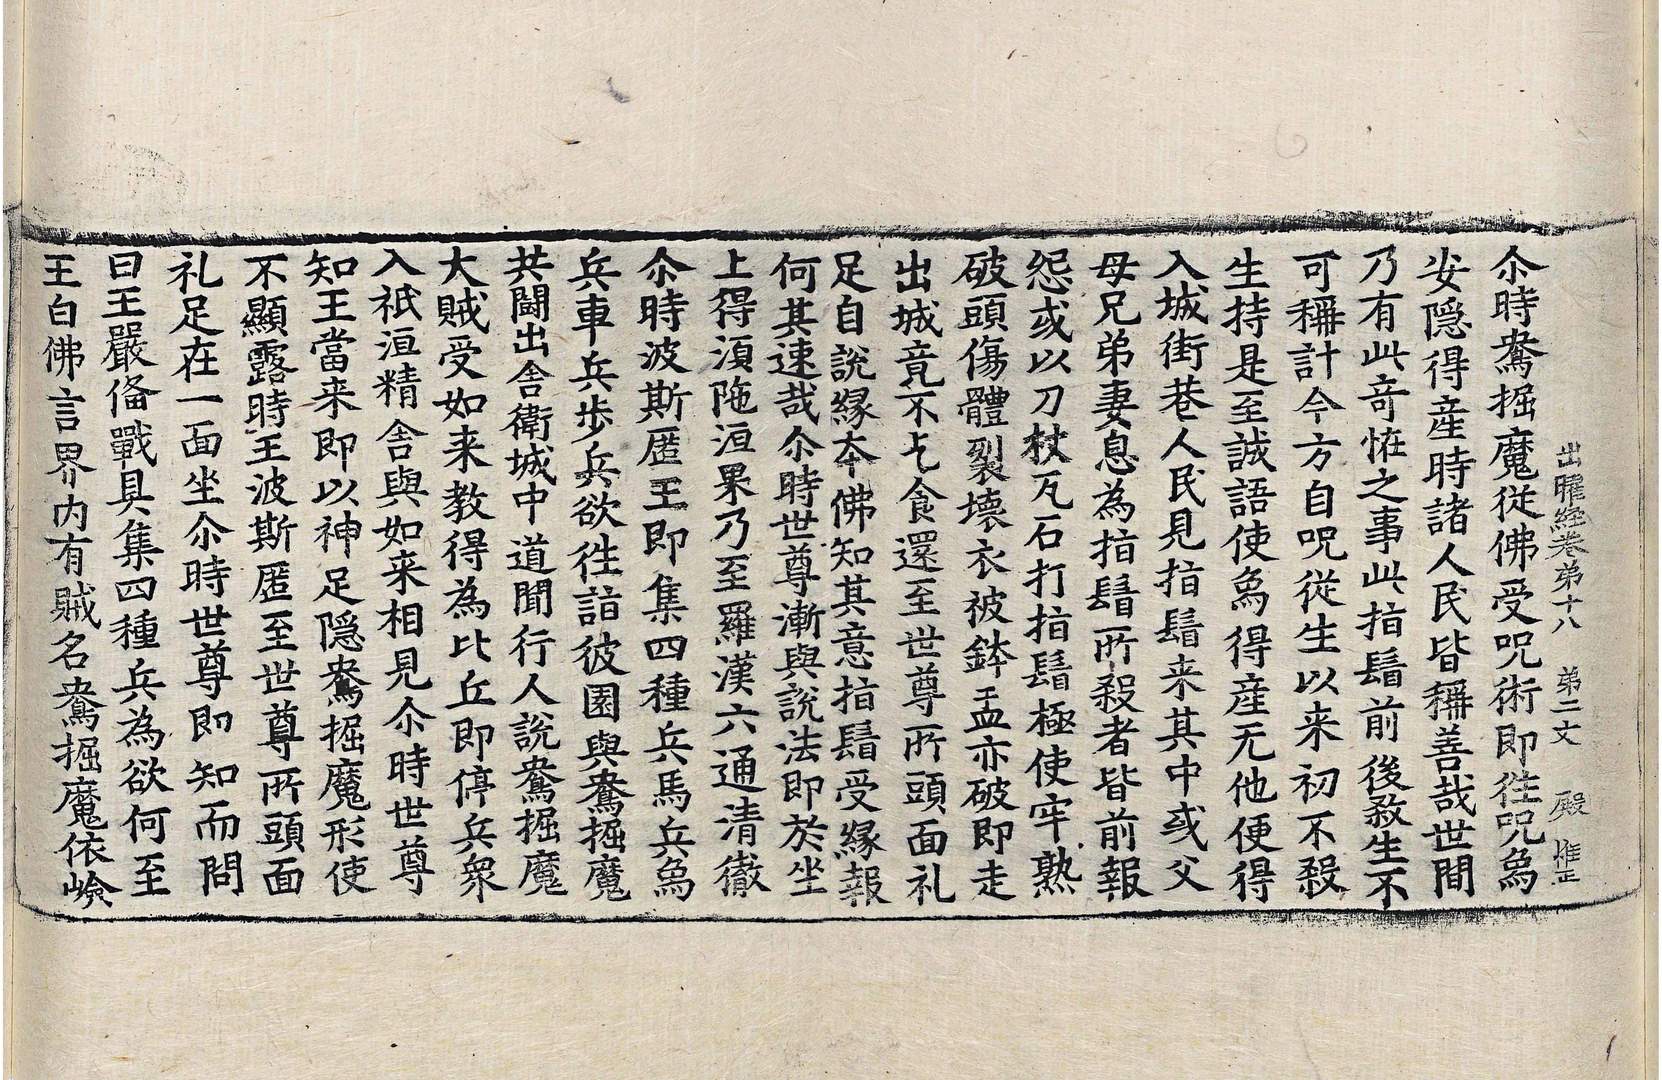 出曜經卷第十八　第二丈　殿　惟正
尒時鴦掘魔從佛受呪術即往呪爲
安隱得産時諸人民皆稱善哉世間
乃有此竒恠之事此指鬘前後煞生不
可稱計今方自呪從生以来初不殺
生持是至誠語使爲得産无他便得
入城街巷人民見指鬘来其中或父
母兄弟妻息為指鬘所殺者皆前報
怨或以刀杖瓦石打指鬘極使牢熟
破頭傷體裂壞衣被鉢盂亦破即走
出城竟不乞食還至世尊所頭面礼
足自說縁夲佛知其意指鬘受縁報
何其速哉尒時世尊漸與說法即於坐
上得湏陁洹果乃至羅漢六通清徹
尒時波斯匿王即集四種兵馬兵爲
兵車兵歩兵欲徃詣彼園與鴦掘魔
共鬪出舎衛城中道聞行人說鴦掘魔
大賊受如来教得為比丘即停兵衆
入祇洹精舎與如来相見尒時世尊
知王當来即以神足隱鴦掘魔形使
不顯露時王波斯匿至世尊所頭面
礼足在一面坐尒時世尊即知而問
曰王嚴俻戰具集四種兵為欲何至
王白佛言界内有賊名鴦掘魔依嶮